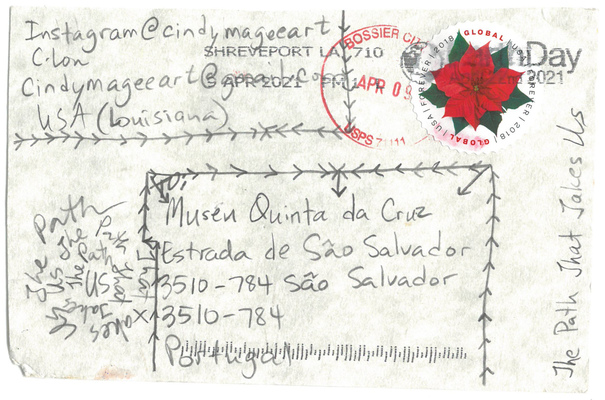 Instagram@cindymageeart
C.lon
SHREVEPORT LA 710
cindymageeart@gmail.com
5 APR 2021 PM
USA (Louisiana)
BOSSIER CITY
APR 09
USPS 71111
GLOBAL USA FOREVER 2018 GLOBAL USA FOREVER 2018
Day
2021
To:
Museu Quinta da Cruz
Estrada de São Salvador
3510-784 São Salvador
3510-784
Portugal
The Path
The Path
US
The Path That Takes Us